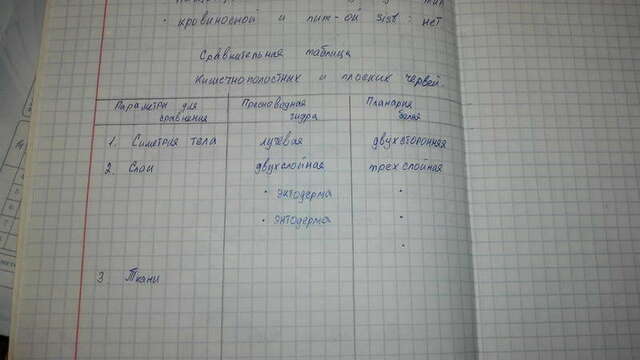 · кровиносной и пит-ой sist: нет
Сравнительная таблица
Кишечнополостных и плоских червей.
Параметры для сравнения | Пресноводная гидра | Планария белая
1. Симетрия тела | лучевая | двухсторонняя
2. Слои | двухслойная | трехслойная
· эктодерма | ·
· энтодерма | ·
·
3 Ткани